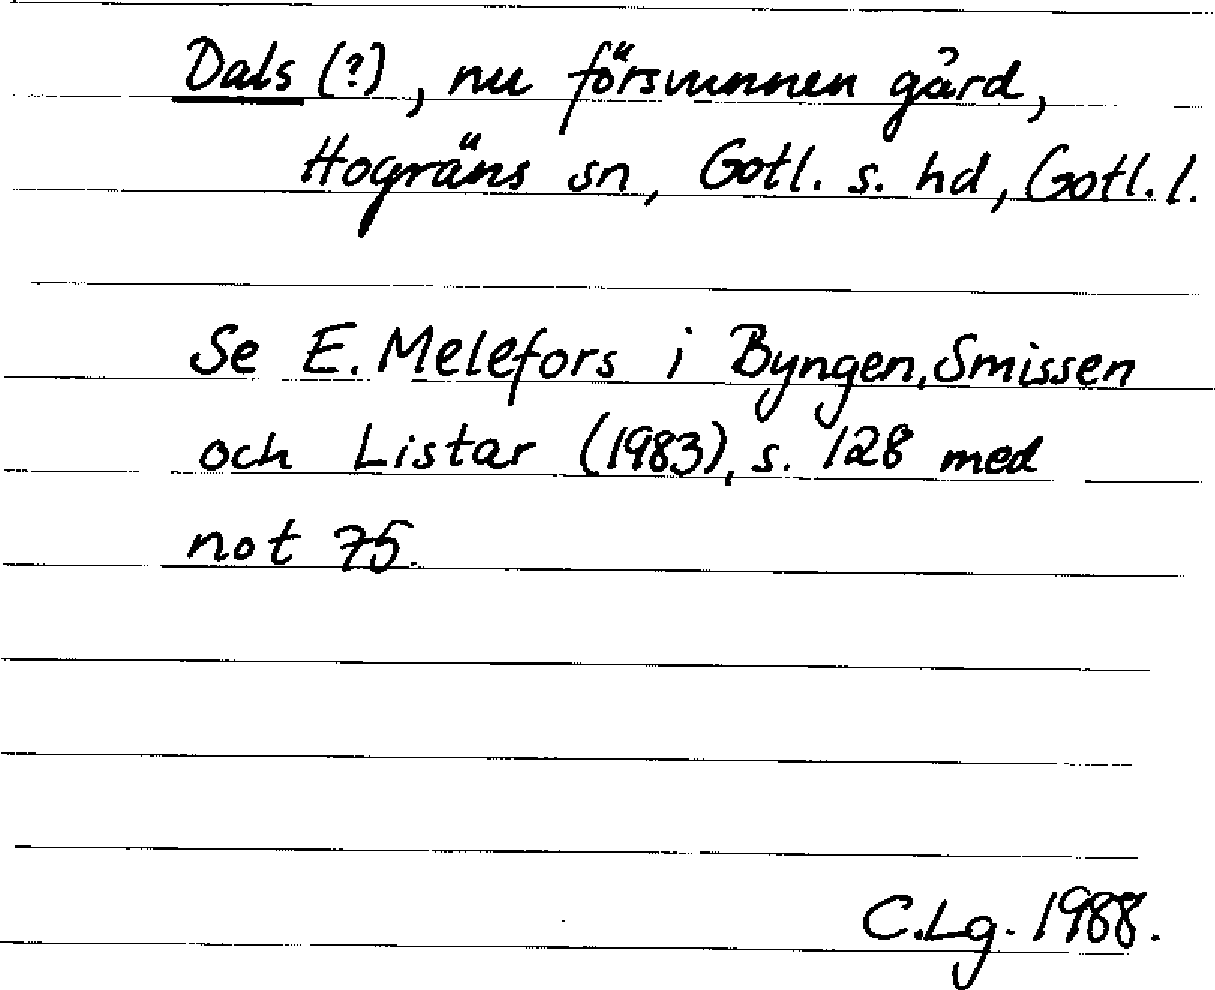 Dals (?), nu försvunnen gård,
Hogräns sn, Gotl. s. hd, Gotl. l.
Se E. Melefors i Byngen, Smissen
och Listar (1983), s. 128 med
not 75.
C.Lg. 1988.